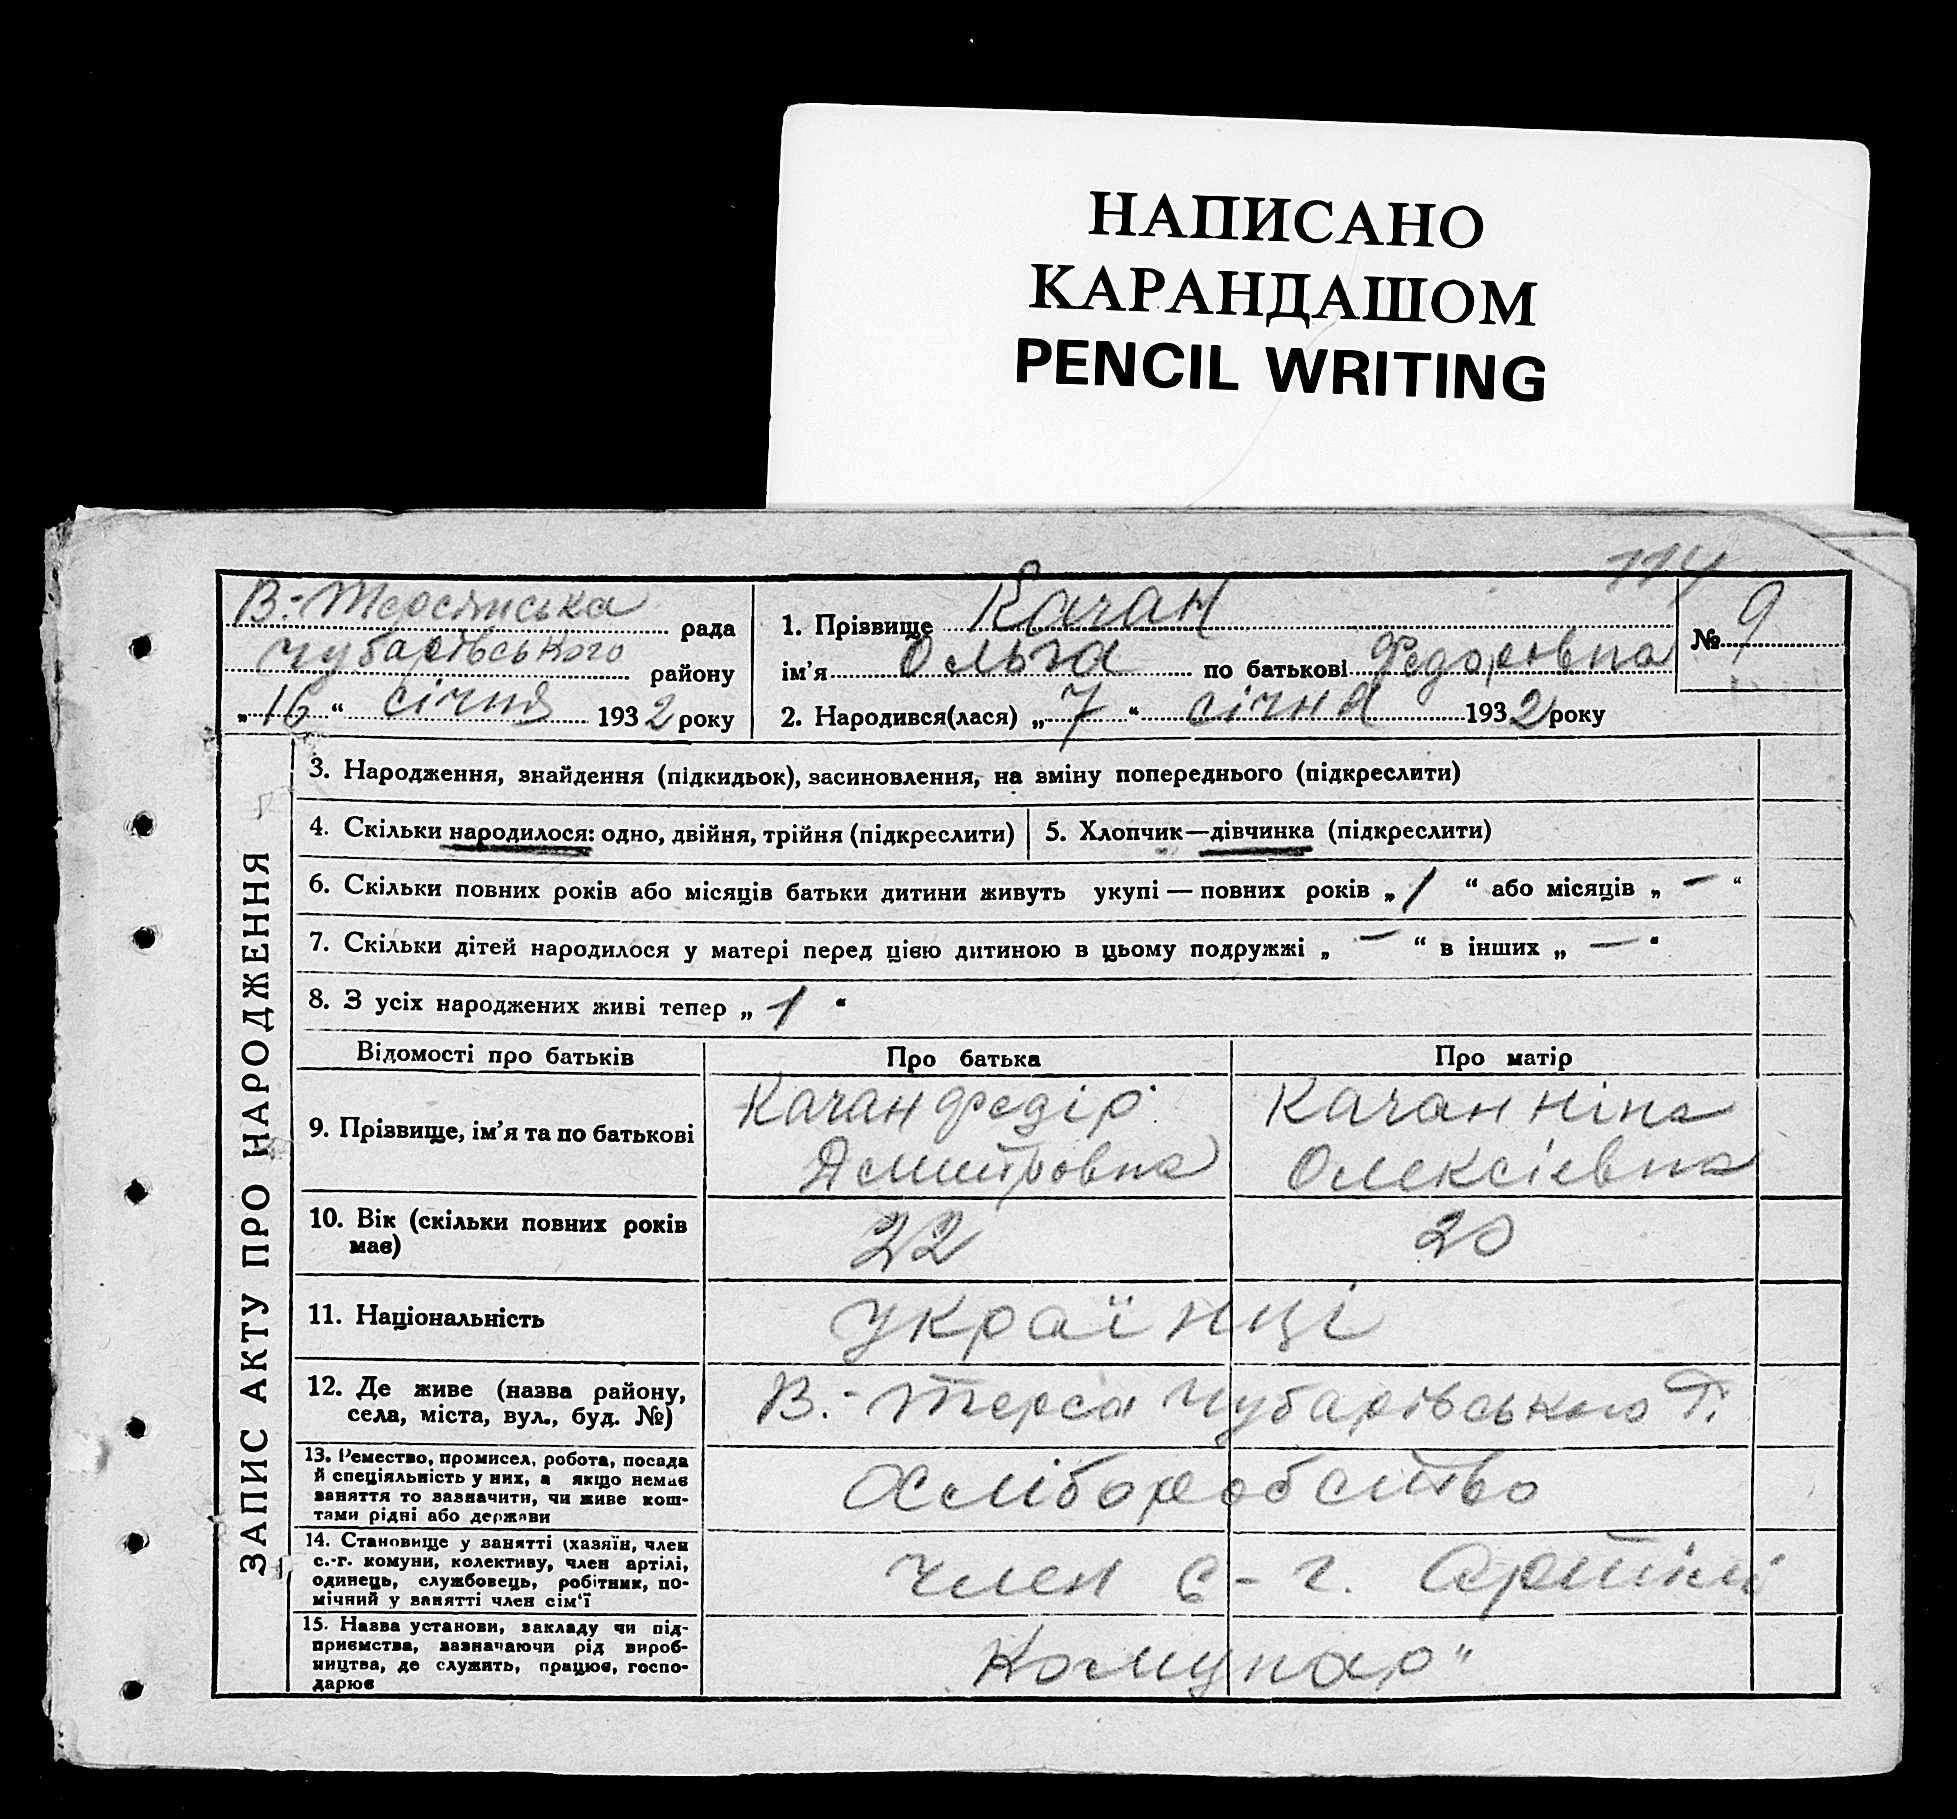 НАПИСАНО
КАРАНДАШОМ
PENCIL WRITING
114
В.-Терсянська рада
Чубарівського району
„16“ січня 1932 року
1. Прізвище Качан
ім’я Ольга по батькові Федоровна
№ 9
2. Народився(лася) „7“ січня 1932 року
ЗАПИС АКТУ ПРО НАРОДЖЕННЯ
3. Народження, знайдення (підкидьок), засиновлення, на зміну попереднього (підкреслити)
4. Скільки народилося: одно, двійня, трійня (підкреслити)
5. Хлопчик—дівчинка (підкреслити)
6. Скільки повних років або місяців батьки дитини живуть укупі — повних років „1“ або місяців „—“
7. Скільки дітей народилося у матері перед цією дитиною в цьому подружжі „—“ в інших „—“
8. З усіх народжених живі тепер „1“
Відомості про батьків
Про батька
Про матір
9. Прізвище, ім’я та по батькові
Качан Федір
Дмитровна
Качан Ніна
Олексієвна
10. Вік (скільки повних років
має)
22
20
11. Національність
українці
12. Де живе (назва району,
села, міста, вул., буд. №)
В.-Терса Чубарівського р.
13. Ремество, промисел, робота, посада
й спеціяльність у них, а якщо немає
заняття то зазначити, чи живе кош-
тами рідні або держави
Хліборобство
14. Становище у занятті (хазяїн, член
с.-г. комуни, колективу, член артілі,
одинець, службовець, робітник, по-
мічний у занятті член сім‘ї
член с-г. Артілі
15. Назва установи, закладу чи під-
приємства, зазначаючи рід вироб-
ництва, де служить, працює, госпо-
дарює
Комунар"